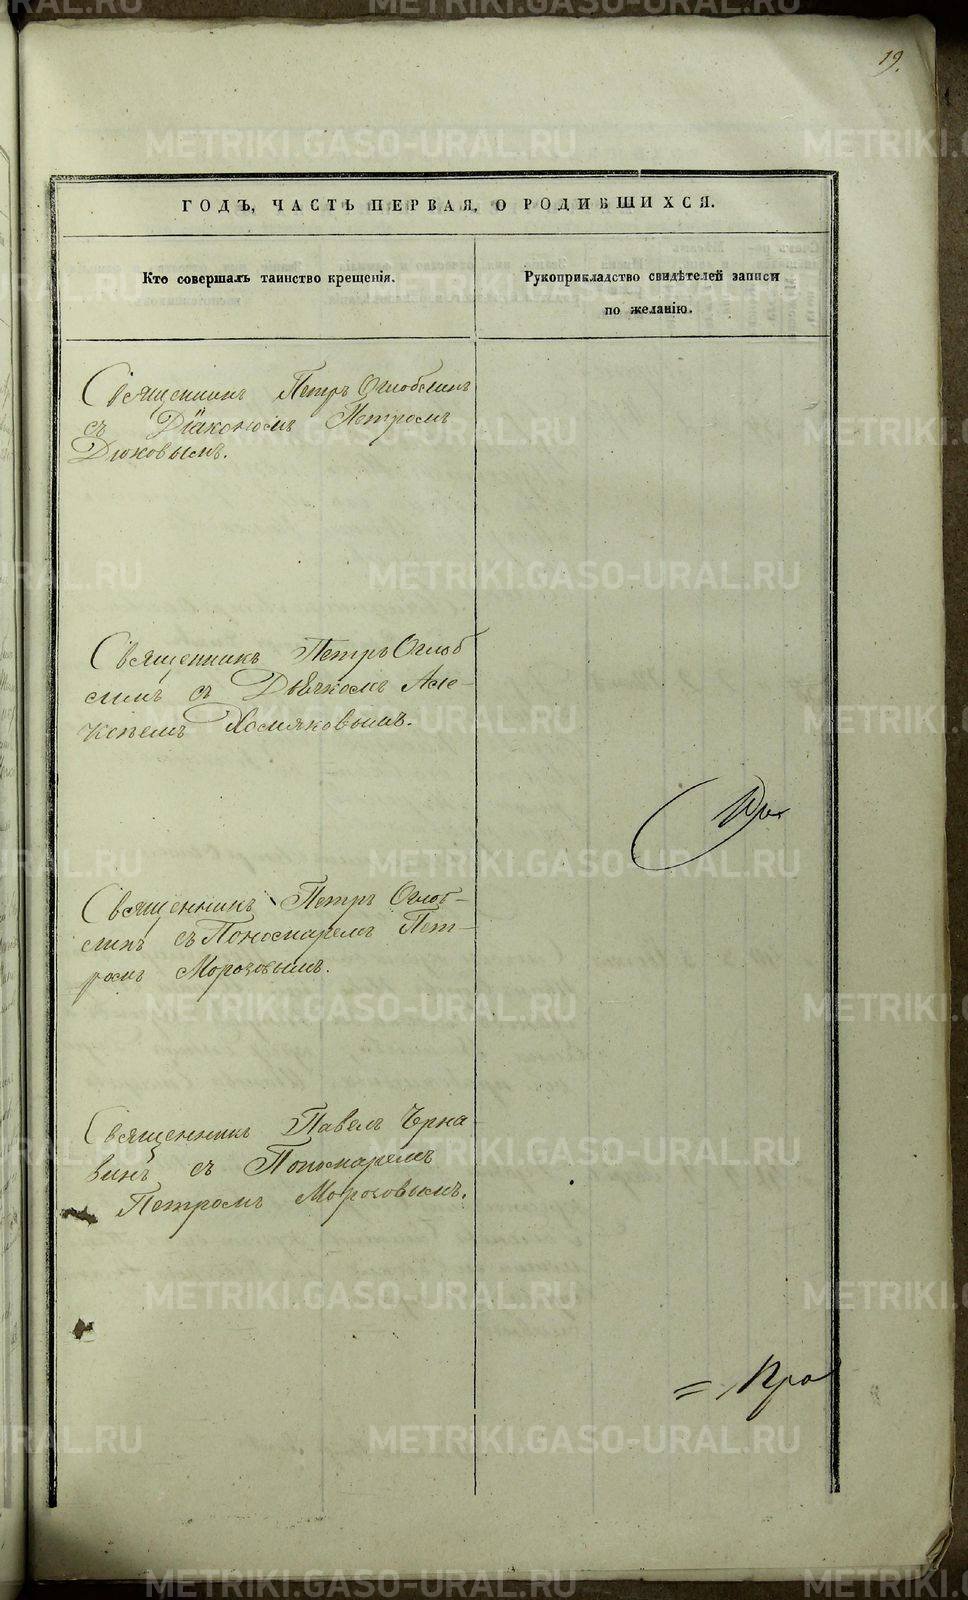 19.
ГОДЪ, ЧАСТЬ ПЕРВАЯ, О РОДИВШИХСЯ.
Кто совершалъ таинство крещенія.
Рукоприкладство свидѣтелей записи
по желанію.
Священникъ Петръ Оглоблинъ
съ Діакономъ Петромъ
Дюковымъ.
Священникъ Петръ Оглоб
линъ съ Дьячкомъ Але-
ксѣемъ Хомяковымъ.
Священникъ Петръ Оглоб-
линъ съ Пономаремъ Пет-
ромъ Морозовымъ.
Священникъ Павелъ Черна
винъ съ Пономаремъ
Петромъ Морозовымъ.
= Про
METRIKI.GASO-URAL.RU